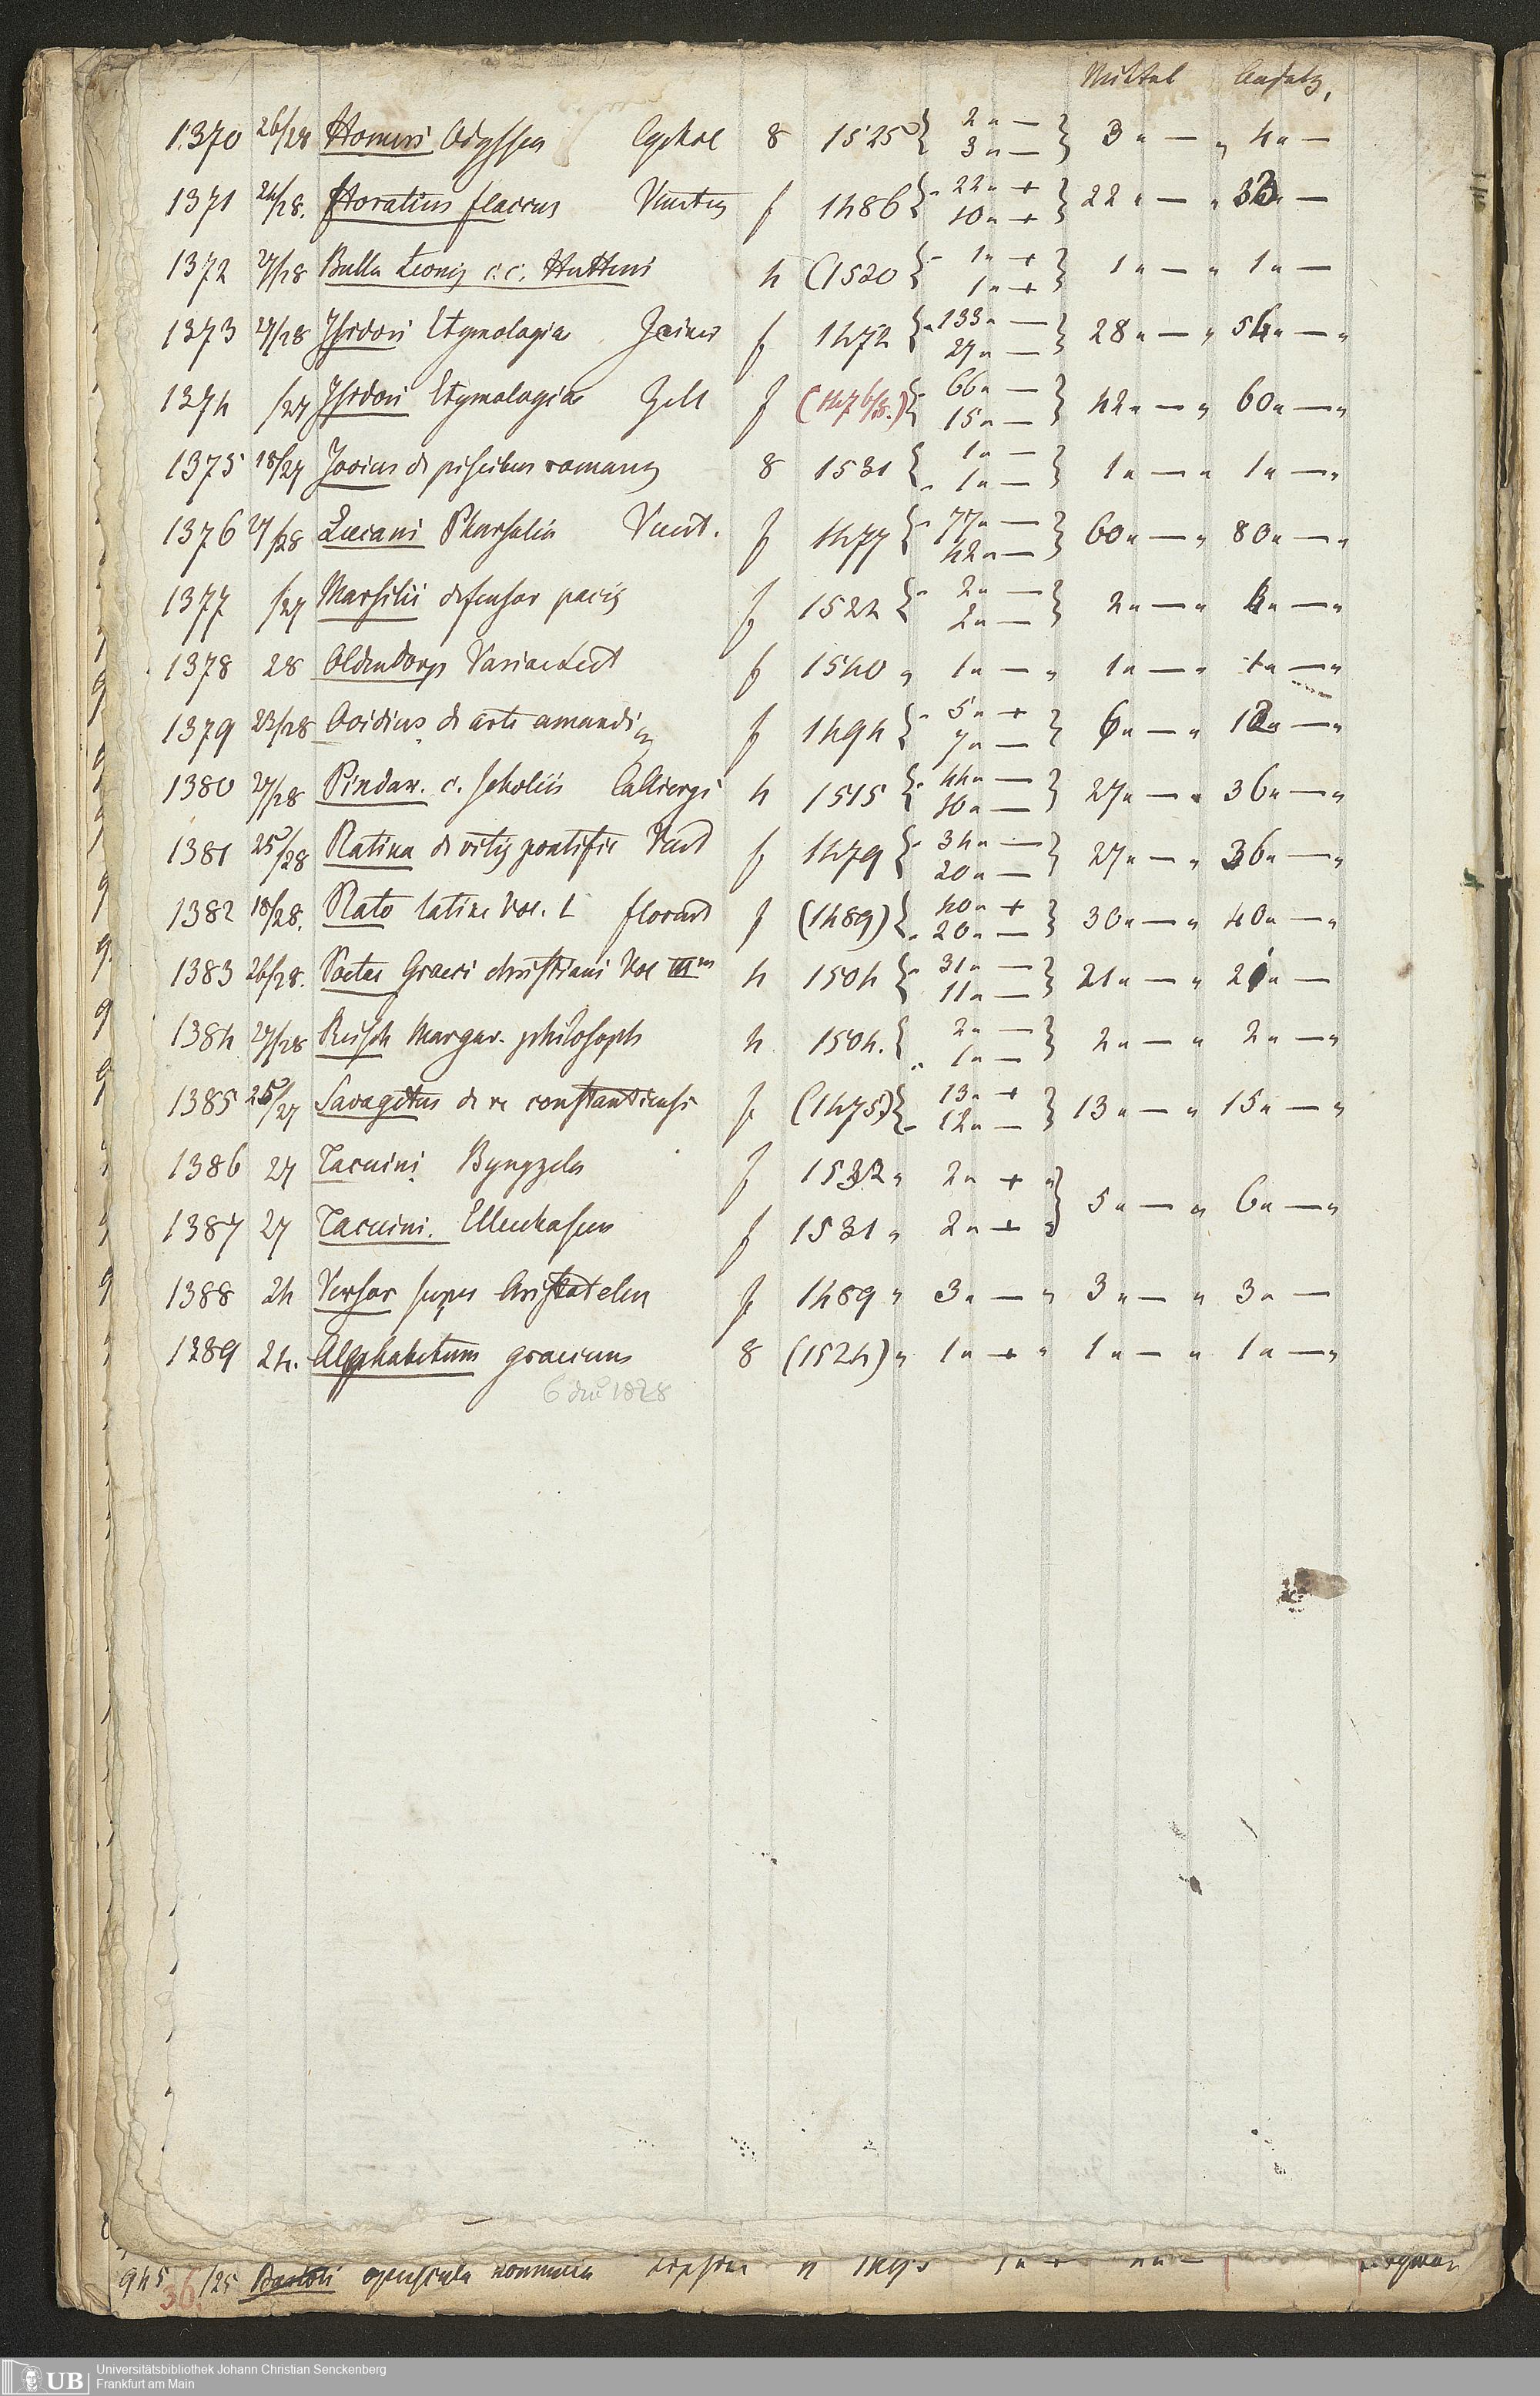 Mittel Ansatz,
1370 26/28 Homeri Odyssea Cephal 8 1525 { 2 „ — 3 „ — } 3 „ — „ 4 „ —
1371 24/28. Horatius flaccus Venetiis f 1486 { 22 „ + 10 „ + } 22 „ — „ 33 „ —
1372 27/28 Bulla Leonis c. c. Hutteni 4 (1520 { 1 „ + 1 „ + } 1 „ — „ 1 „ —
1373 27/28 Isidori Etymologia Zainer f 1472 { 133 „ — 27 „ — } 28 „ — „ 54 „ — „
1374 /27 Isidori Etymologia Zell f (1476/8.) { 66 „ — 15 „ — } 42 „ — „ 60 „ — „
1375 18/27 Jovius de piscibus romanis 8 1531 { 1 „ — 1 „ — } 1 „ — „ 1 „ — „
1376 27/28 Lucani Pharsalia Venet. f 1477 { 77 „ — 42 „ — } 60 „ — „ 80 „ — „
1377 /27 Marsilii defensor pacis f 1522 { 2 „ — 2 „ — } 2 „ — „ 4 „ — „
1378 28 Oldendorp Variae Lect f 1540 „ 1 „ — „ 1 „ — „ 1 „ — „
1379 23/28 Ovidius de arte amandi f 1494 { 5 „ + 7 „ — } 6 „ — „ 12 „ — „
1380 27/28 Pindar. c. scholiis Calliergi 4 1515 { 44 „ — 10 „ — } 27 „ — „ 36 „ — „
1381 25/28 Platina de vitis pontific Venet f 1479 { 34 „ — 20 „ — } 27 „ — „ 36 „ — „
1382 18/28. Plato latine Vol. I florent f (1489) { 40 „ + 20 „ — } 30 „ — „ 40 „ — „
1383 26/28. Poetae Graeci christiani Vol III 4 1504 { 31 „ — 11 „ — } 21 „ — „ 21 „ —
1384 27/28 Reisch Margar. philosoph 4 1504. { 2 „ — 1 „ — } 2 „ — „ 2 „ — „
1385 25/27 Savagetus de re constantiensi f (1475) { 13 „ + 12 „ — } 13 „ — „ 15 „ — „
1386 27 Tacuini Byngzela f 1532 „ 2 „ + „ }
1387 27 Tacuini. Elluchasem f 1531 „ 2 „ + „ } 5 „ — „ 6 „ — „
1388 24 Versor super Aristotelem f 1489 „ 3 „ — „ 3 „ — „ 3 „ —
1389 24. Alphabetum graecum 8 (1524) „ 1 „ + „ 1 „ — „ 1 „ — „
6 Dec 1828
945 /25 Bartoli opuscula
36.
UB Universitätsbibliothek Johann Christian Senckenberg
Frankfurt am Main